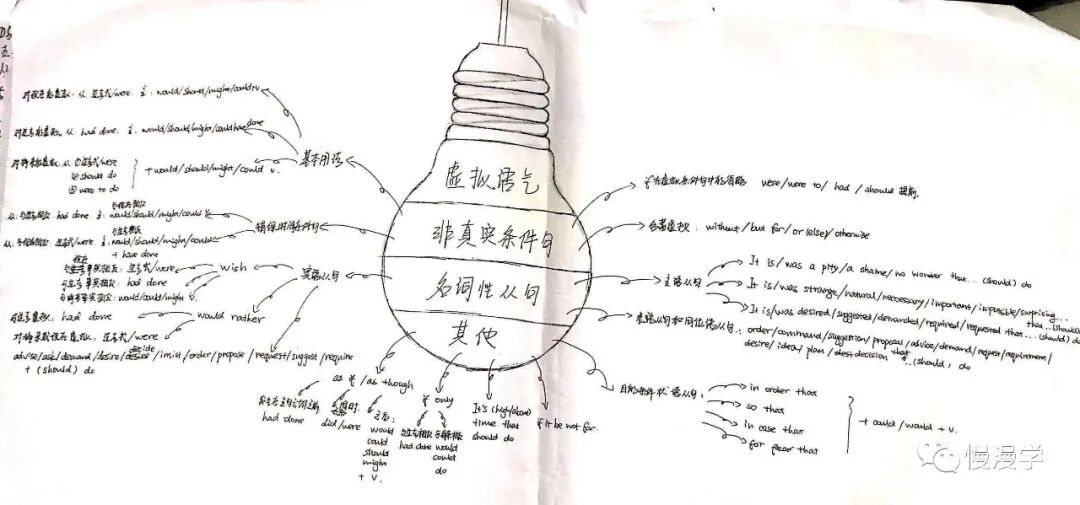 虚拟语气
非真实条件句
名词性从句
其他
基本用法
对现在的虚拟: 从 过去式/were. 主: would/should/might/could+v
对过去的虚拟, 从 had done. 主: would/should/might/could have done
对将来的虚拟: 从 ①过去式/were
②should do
③were to do
+ would/should/might/could v.
错综时间条件句
与现在相反
从: 与过去相反: had done 主: would/should/might/could v.
与过去相反
从: 与现在相反: 过去式/were. 主: would/should/might/could
+ have done
宾语从句
wish
现在
与过去事实相反: 过去式/were
与过去事实相反: had done
与将来事实相反: would/could/might v.
would rather
对过去虚拟: had done
对将来或现在虚拟: 过去式/were
decide
advise/ask/demand/desire/desire/insist/order/propose/request/suggest/require
+ (should) do
as if/as though
had done
同时:
did/were
之后:
would
could
should
might
+ v.
if only
与过去相反
had done
与将来相反
would
could
do
It's (high/about)
time that
should do
if it be not for.
if非真实条件句中的省略 were/were to/had/should 提前.
含蓄虚拟: without/but for/or (else)/otherwise
主语从句
It is/was a pity/a shame/no wonder that... (should) do
It is/was strange/natural/necessary/important/impossible/surprising...
that...(should) do
It is/was desired/suggested/demanded/required/requested that...(should) do
表语从句和同位语从句:
order/command/suggestion/proposal/advice/demand/request/requirement/
desire/idea/plan/decision that...(should) do
目的状语从句:
in order that
so that
in case that
for fear that
+ could/would + v.
慢漫学